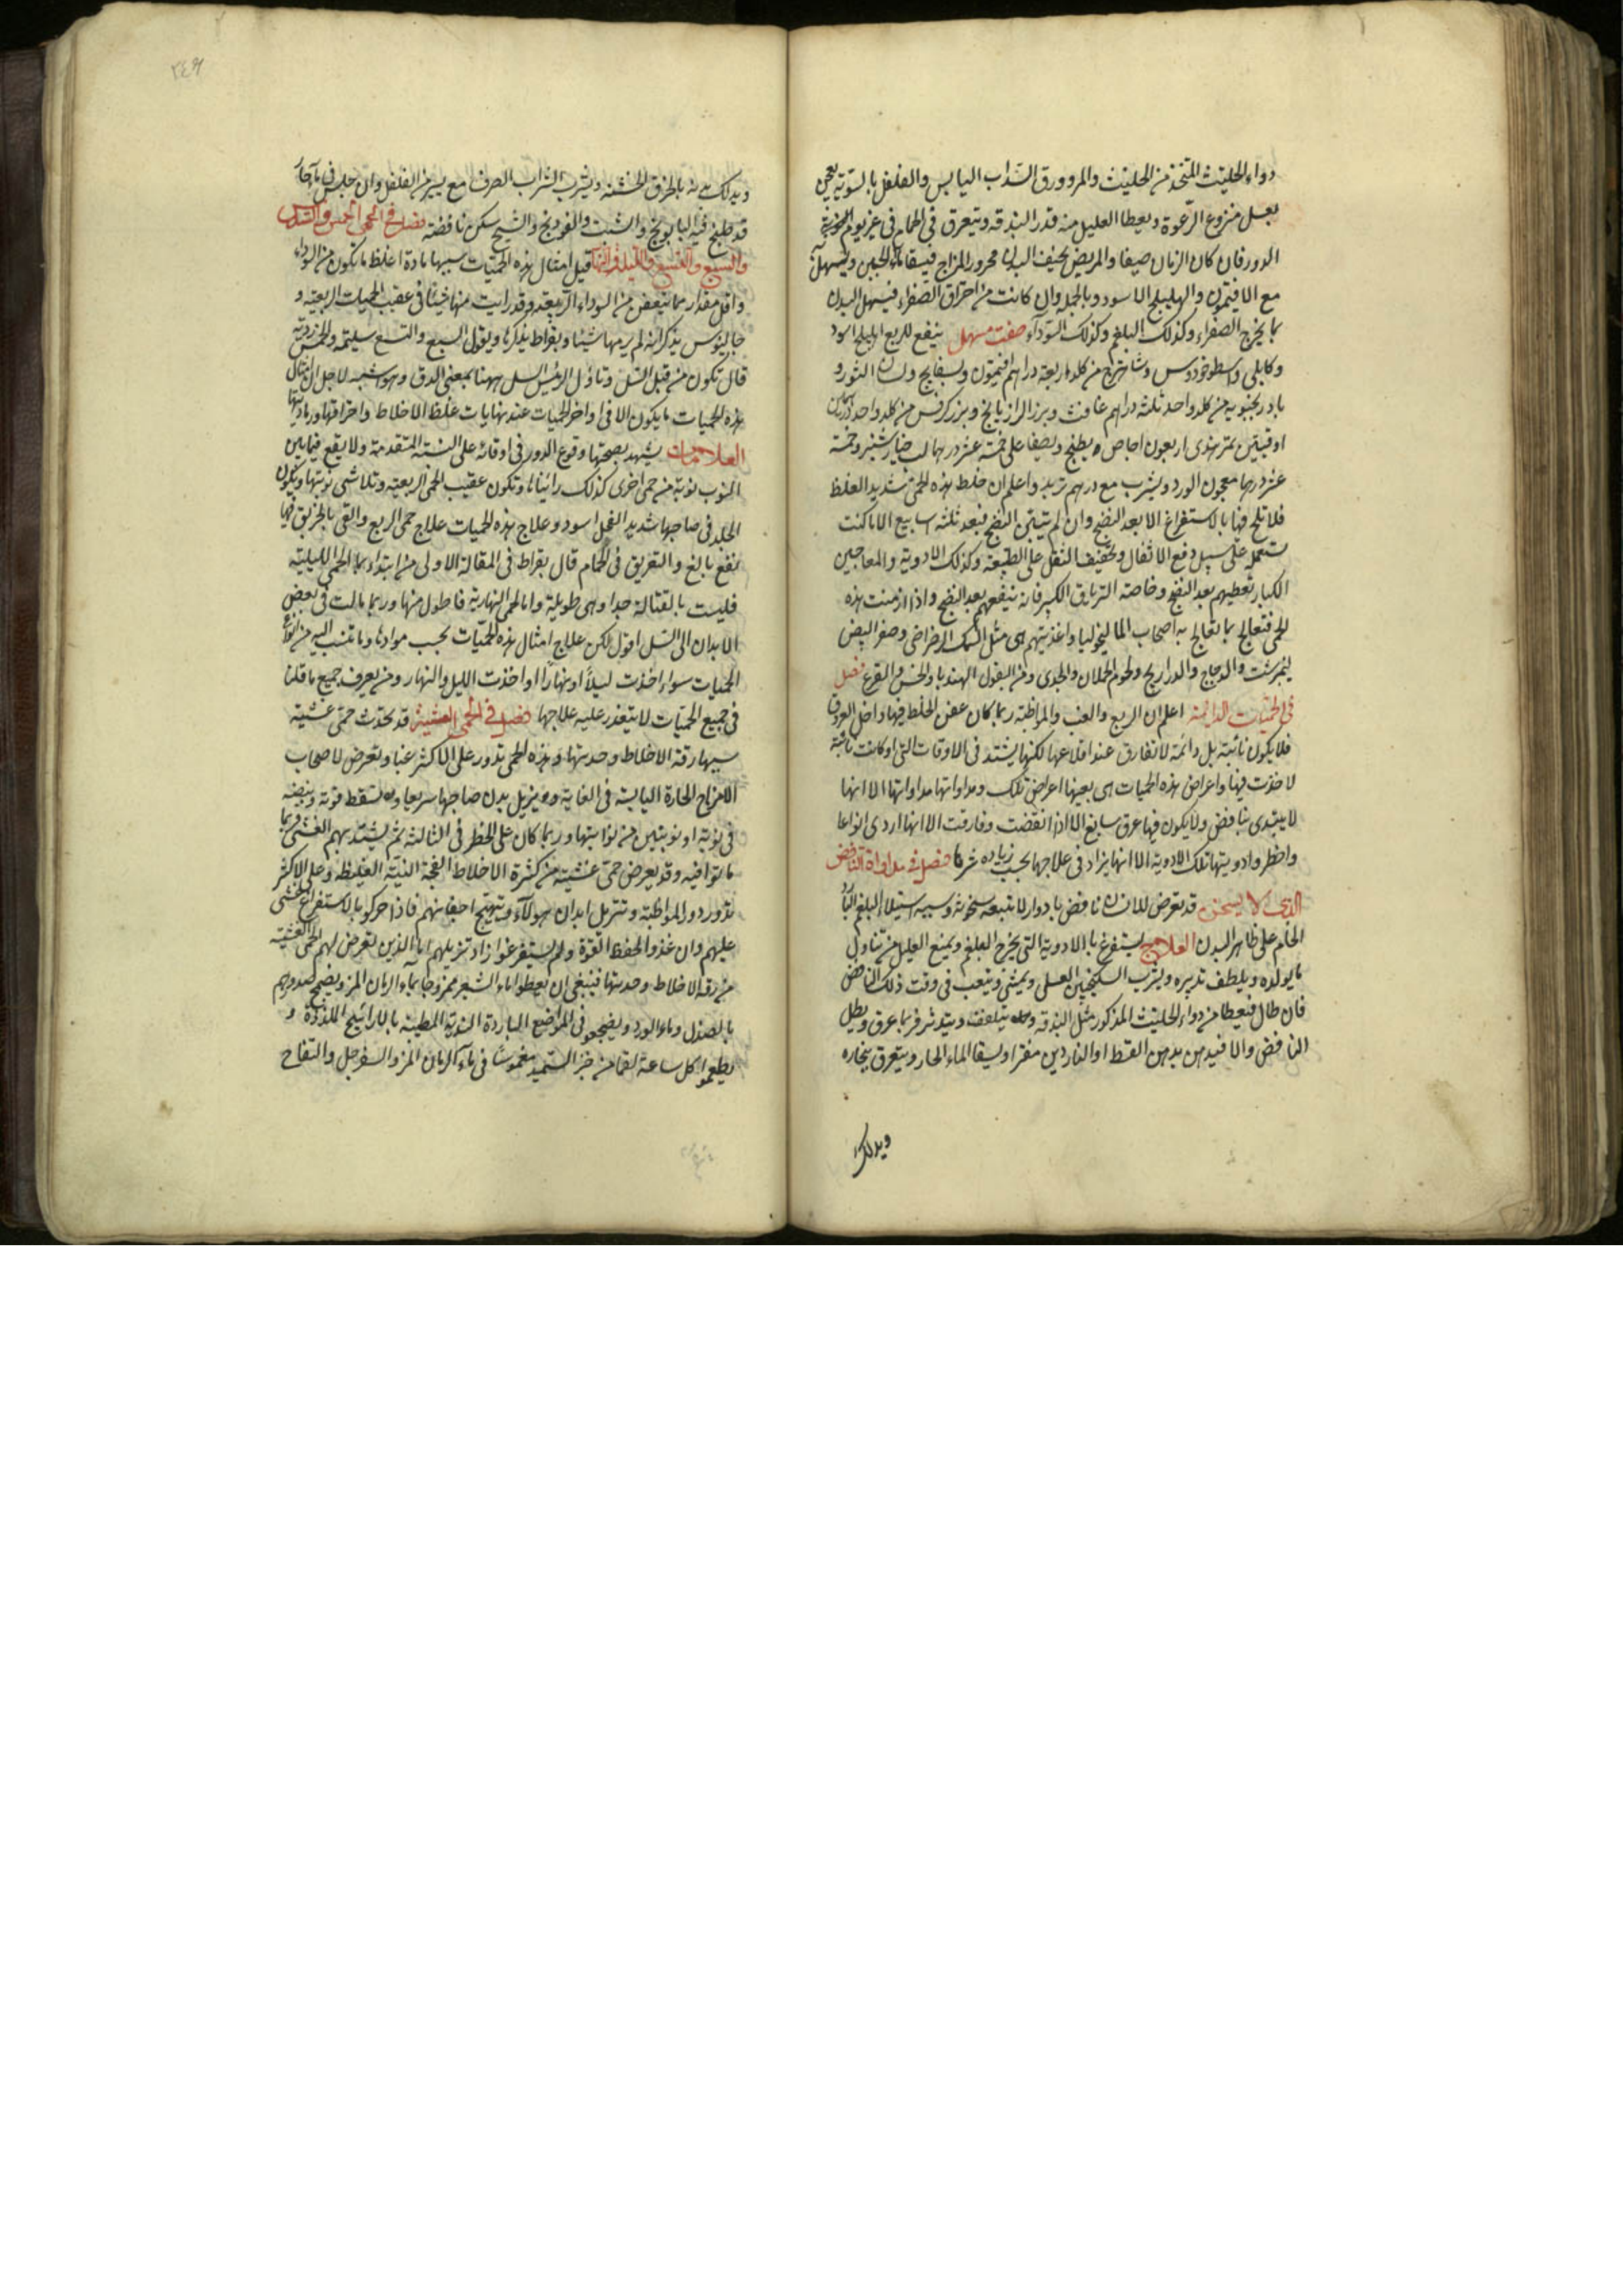 دواء الحلتيت المتخذ من الحلتيت والمر وورق السداب اليابس والفلفل بالسوية يعجن
بعسل منزوع الرغوة ويعطا العليل منه قدر البندقة ويتعرق في الحمام في غير يوم
الدور فان كان الزمان صيفا والمريض نحيف البدن محرور المزاج فيسقا ماء الجبن ويسهل
مع الافتيمون والهليلج الاسود وبالجملة وان كانت من احتراق الصفراء فيسهل البدن
بما يخرج الصفراء وكذلك البلغم وكذلك السوداء صفت مسهل ينفع للربع اهليلج اسود
وكابلى واسطوخودوس وشاهترج من كلد اربعة دراهم افتيمون وبسفايج ولسان الثور و
بادرنجبويه من كلد واحد ثلثة دراهم غافث وبزر الرازيانج وبزر كرفس من كلد واحد درهمان
اوقيتين تمر هندى اربعون اجاص يطبخ ويصفا على خمسة عشر درهما لب خيار شنبر وخمسة
عشر درهما معجون الورد ويشرب مع درهم تربد واعلم ان خلط هذه الحمى شديد الغلظ
فلا تلح فيها بالاستفراغ الا بعد النضج وان لم يتبين النضج فبعد ثلثه اسابيع الا ما كنت
تستعمله على سبيل دفع الاثفال وتخفيف الثقل على الطبيعة وكذلك الادوية والمعاجين
الكبار تعطيهم بعد النضج وخاصة الترياق الكبير فانه ينفعهم بعد النضج واذا ازمنت هذه
الحمى فتعالج بما تعالج به اصحاب الماليخوليا واغذيتهم هى مثل السمك الرضراضى وصفر البيض
نيمبرشت والدجاج والدراريج ولحوم الحملان والجدى ومن البقول الهندبا والخس والقرع فصل
في الحميات الدائمة اعلم ان الربع والغب والمواظبة ربما كان عفن الخلط فيها داخل العروق
فلا يكون نائبة بل دائمة لا تفارق عند اقلاعها لكنها يشتد في الاوقات التى لو كانت نائبة
لاخذت فيها واعراض هذه الحميات هى بعينها اعراض تلك ومداواتها مداواتها الا انها
لا يبتدى بنافض ولا يكون فيها عرق سابغ الا اذا انقضت وفارقت الا انها اردى انواعا
واخطر وادويتها تلك الادوية الا انها يزاد في علاجها بحسب زيادة شرها فصل في مداواة النافض
الذى لا يسخن قد تعرض للانسان نافض بادوار لا تتبعه سخونة وسببه استيلاء البلغم
الخام على ظاهر البدن العلاج يستفرغ بالادوية التى يخرج البلغم ويمنع العليل من تناول
ما يولده ويلطف تدبيره ويشرب السكنجبين العسلى ويمشى ويتعب في وقت ذلك النافض
فان طال فيعطا من دواء الحلتيت المذكور مثل البندقة ويتدثر فربما عرق وبطل
النافض والا فيدهن بدهن القسط او الناردين مفترا ويسقا الماء الحار ويتعرق ببخاره
ويدلك
٢٤٩
ويدلك بدنه بالخرق الخشنه ويشرب الشراب الصرف مع يسير من الفلفل وان جلس في ماء حار
قد طبخ فيه البابونج والشبت والفودنج والشيح سكن نافضه فصل في الحمى الخمس والسدس
والسبع والتسع والليل والنهار قيل امثال هذه الحميات سببها مادة اغلظ ما تكون من السوداء
واقل مقدار مما يتعفن من السوداء الربيعية وقد رايت منها شيئا في عقب الحميات الربعية و
جالينوس يذكر انه لم ير منها شيئا وبقراط يذكرها ويقول السبع والتسع سليمة والخمس ردية
قال تكون من قبل السل وتاول الرئيس السل ههنا بمعنى الدق وهو اشبه لاجل ان امثال
هذه الحميات ما يكون الا في اواخر الحميات عند نهايات غلظ الاخلاط واحتراقها ورماديتها
العلامات يشهد بصحتها وقوع الدور في اوقاته على السنة المتقدمة ولا يقع فيما بين
النوب نوبة من حمى اخرى كذلك رايناها وتكون عقيب الحمى الربعية وتلاشى نوبتها ويكون
الجلد في صاحبها شديد القحل اسود وعلاج هذه الحميات علاج حمى الربع والقى بالخربق فيها
نفع بالغ والتعريق في الحمام قال بقراط في المقالة الاولى من ابتداء بها الحمى الليلية
فليست بالقتالة جدا وهى طويلة واما الحمى النهارية فاطول منها وربما مالت في بعض
الابدان الى السل اقول لكن علاج امثال هذه الحميات بحسب موادها وما تنسب اليه من انواع
الحميات سواء اخذت ليلا او نهارا او اخذت الليل والنهار ومن يعرف جميع ما قلنا
في جميع الحميات لا يتعذر عليه علاجها فصل في الحمى الغشية قد تحدث حمى غشية
سببها رقة الاخلاط وحدتها وهذه الحمى تدور على الاكثر غبا وتعرض لاصحاب
الامزاج الحارة اليابسة في الغاية ويزيل بدن صاحبها سريعا ويسقط قوته ونبضه
في نوبة او نوبتين من نوائبها وربما كان على الخطر في الثالثة ثم يشتد بهم الغشى فربما
ماتوا فيه وقد يعرض حمى غشية من كثرة الاخلاط الفجة النية الغليظة وعلى الاكثر
تدور دور المواظبة وتترهل ابدان هولاء وتتهيج اجفانهم فاذا حركوا بالاستفراغ غشى
عليهم وان غذوا لحفظ القوة ولم يستفرغوا زاد ترهيلهم اما الذين تعرض لهم الحمى الغشية
من رقة الاخلاط وحدتها فينبغى ان يعطوا ماء الشعير ممزوجا بماء الرمان المز ويضمخ صدورهم
بالصندل وماء الورد ويضجعوا في المواضع الباردة الندية المطيبة بالارائيح الملذذة و
يطعموا كل ساعة لقما من خبز السميد مغموسا في ماء الرمان المز والسفرجل والتفاح